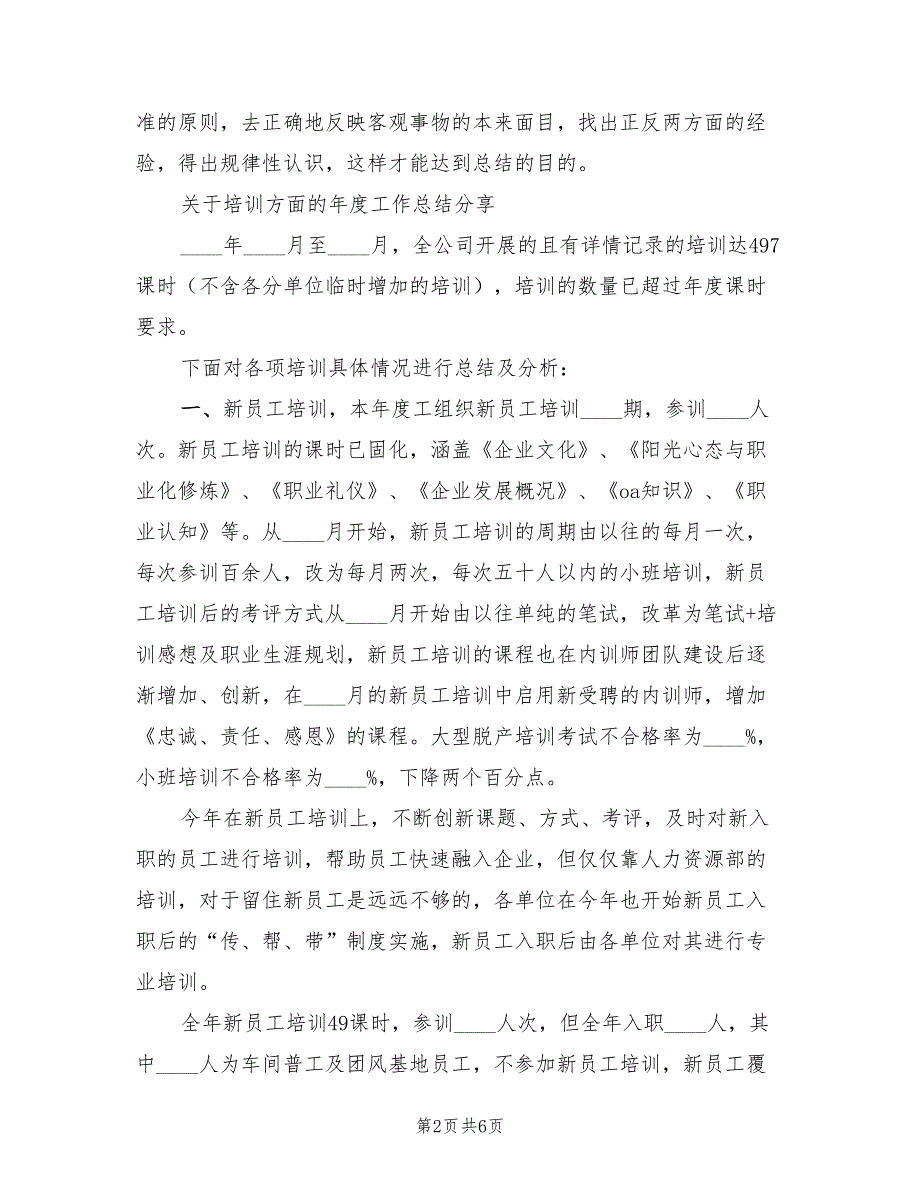 准的原则，去正确地反映客观事物的本来面目，找出正反两方面的经
验，得出规律性认识，这样才能达到总结的目的。
关于培训方面的年度工作总结分享
____年____月至____月，全公司开展的且有详情记录的培训达497
课时（不含各分单位临时增加的培训），培训的数量已超过年度课时
要求。
下面对各项培训具体情况进行总结及分析：
一、新员工培训，本年度工组织新员工培训____期，参训____人
次。新员工培训的课时已固化，涵盖《企业文化》、《阳光心态与职
业化修炼》、《职业礼仪》、《企业发展概况》、《oa知识》、《职
业认知》等。从____月开始，新员工培训的周期由以往的每月一次，
每次参训百余人，改为每月两次，每次五十人以内的小班培训，新员
工培训后的考评方式从____月开始由以往单纯的笔试，改革为笔试+培
训感想及职业生涯规划，新员工培训的课程也在内训师团队建设后逐
渐增加、创新，在____月的新员工培训中启用新受聘的内训师，增加
《忠诚、责任、感恩》的课程。大型脱产培训考试不合格率为____%，
小班培训不合格率为____%，下降两个百分点。
今年在新员工培训上，不断创新课题、方式、考评，及时对新入
职的员工进行培训，帮助员工快速融入企业，但仅仅靠人力资源部的
培训，对于留住新员工是远远不够的，各单位在今年也开始新员工入
职后的“传、帮、带”制度实施，新员工入职后由各单位对其进行专
业培训。
全年新员工培训49课时，参训____人次，但全年入职____人，其
中____人为车间普工及团风基地员工，不参加新员工培训，新员工覆
第2页共6页